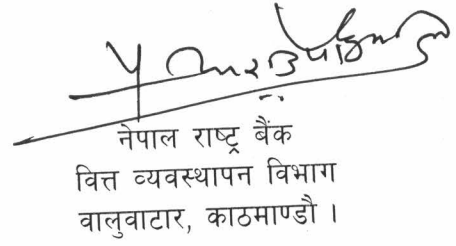 नेपाल राष्ट्र बैंक
वित्त व्यवस्थापन विभाग
वालुवाटार, काठमाण्डौ ।